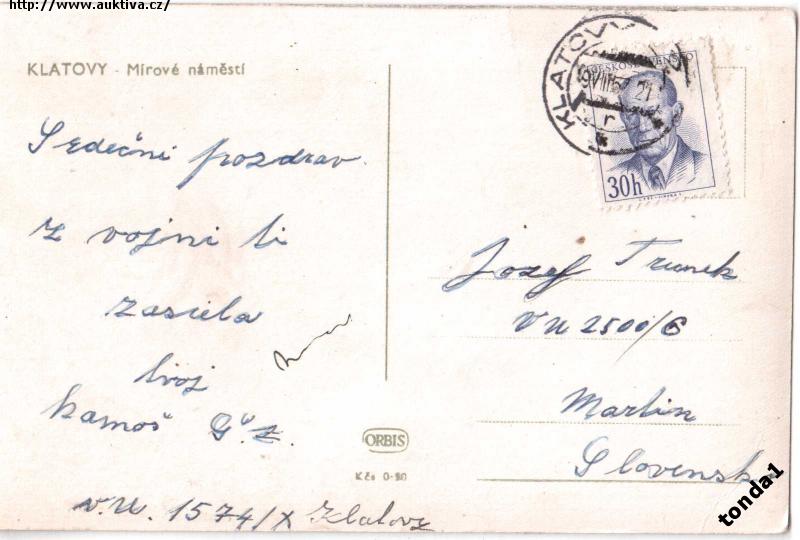 http://www.auktiva.cz/
KLATOVY - Mírové náměstí
Srdečni pozdrav
z vojni ti
zasiela
tvoj
kamoš
v.u. 1574/X Klatovy
ORBIS
Kčs 0·90
KLATOVY
ČESKOSLOVENSKO
30h
Jozef
VU 2500/6
Martin
Slovensk
tonda1